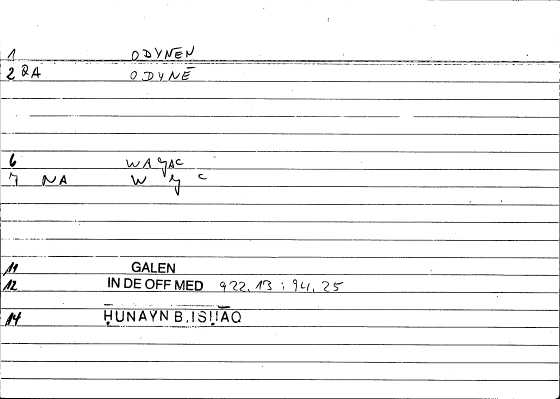 1 ODYNĒN
2 RA ODYNĒ
6 WAǦAC
7 NA W ǧ C
11 GALEN
12 IN DE OFF MED 922.13 : 94.25
14 ḤUNAYN B. ISḤĀQ